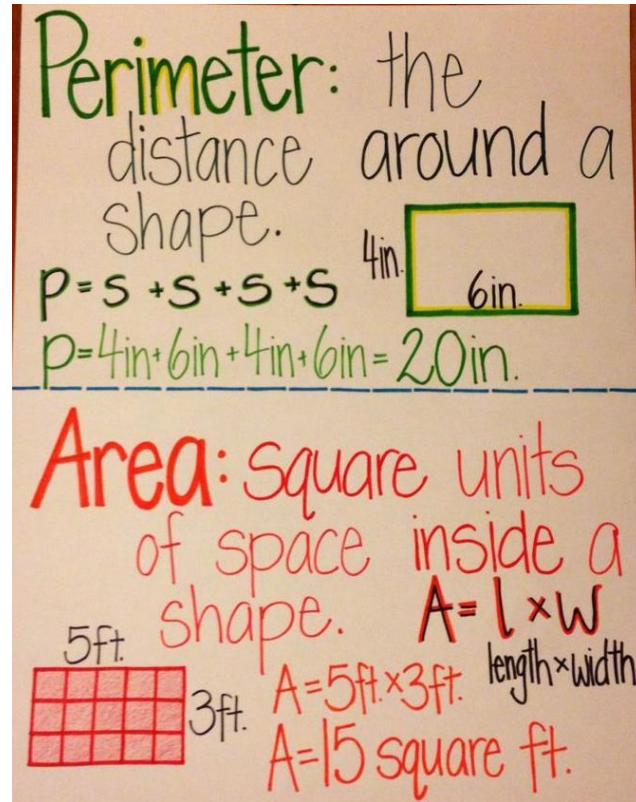 Perimeter: the
distance around a
shape.
4in.
6in.
P=S+S+S+S
P=4in+6in+4in+6in=20in.
Area: square units
of space inside a
shape.
A=l×w
length×width
5ft.
3ft.
A=5ft.×3ft.
A=15 square ft.